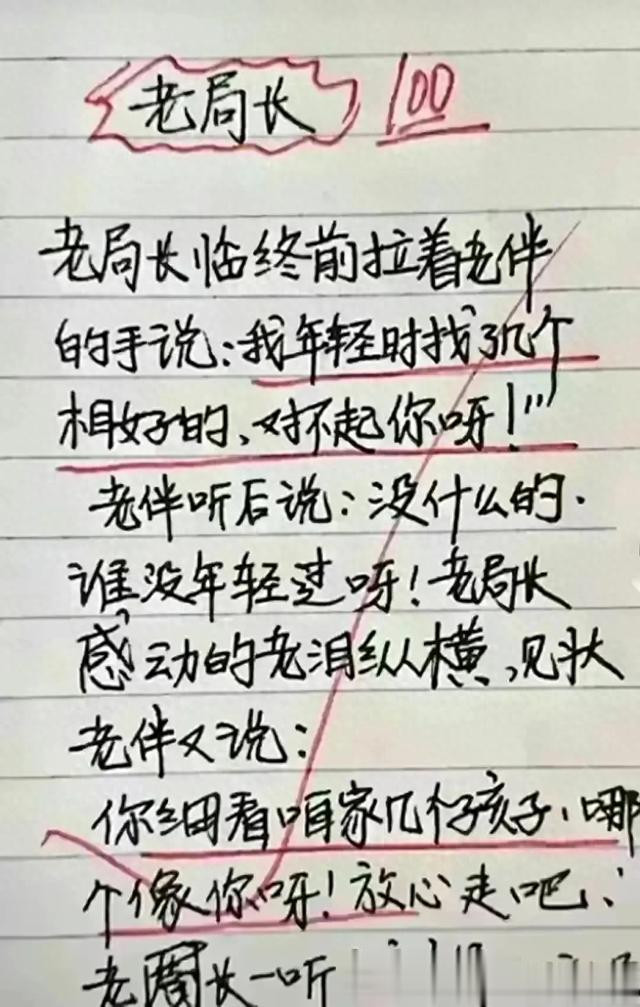 老局长 100
老局长临终前拉着老伴
的手说:我年轻时找了几个
相好的、对不起你呀!"
老伴听后说:没什么的.
谁没年轻过呀!老局长
感动的老泪纵横,见状
老伴又说:
你细看咱家几个孩子、哪
个像你呀!放心走吧、
老局长一听